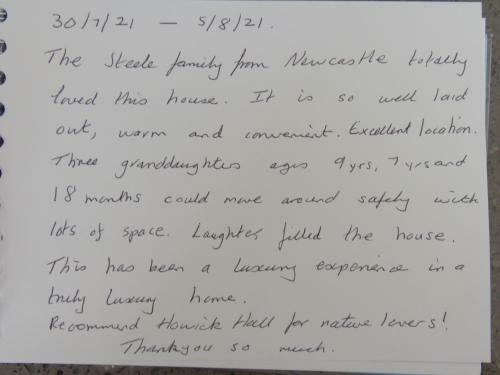 30/7/21 — 5/8/21.
The Steele family from Newcastle totally
loved this house. It is so well laid
out, warm and convenient. Excellent location.
Three granddaughters ages 9yrs, 7yrs and
18 months could move around safely with
lots of space. Laughter filled the house.
This has been a luxury experience in a
truly luxury home.
Recommend Howick Hall for nature lovers!
Thankyou so much.